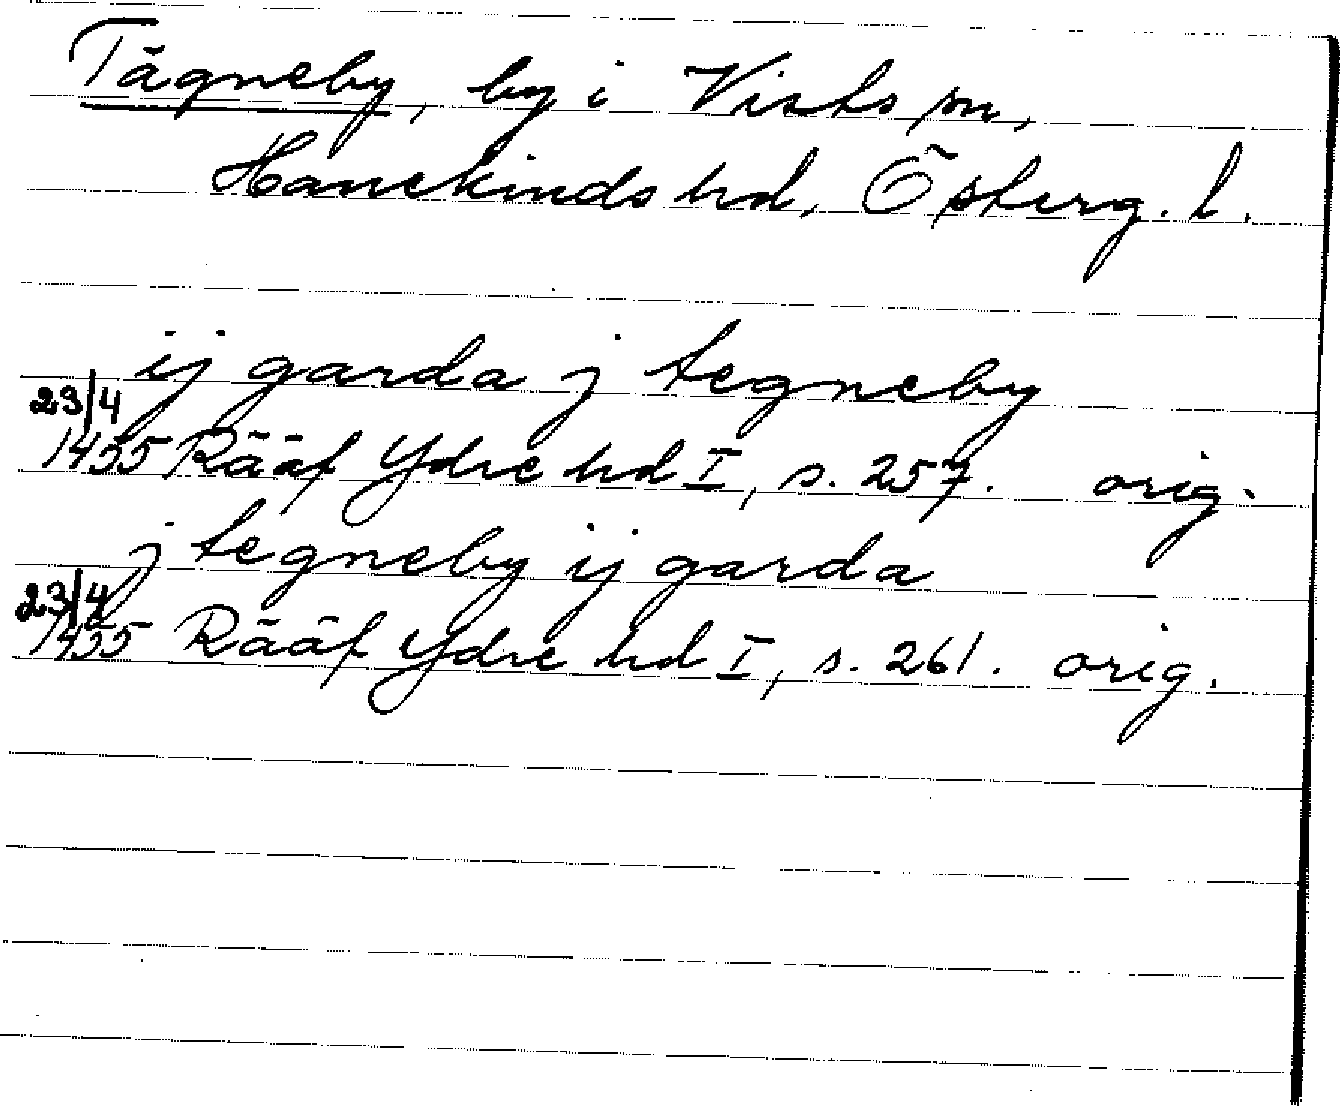 Tägneby, by i Vists sn,
Hanekinds hd, Österg. l.
ij garda j tegneby
23/4
1455 Rääf Ydre hd I, s. 257. orig.
j tegneby ij garda
23/4
1455 Rääf Ydre hd I, s. 261. orig.